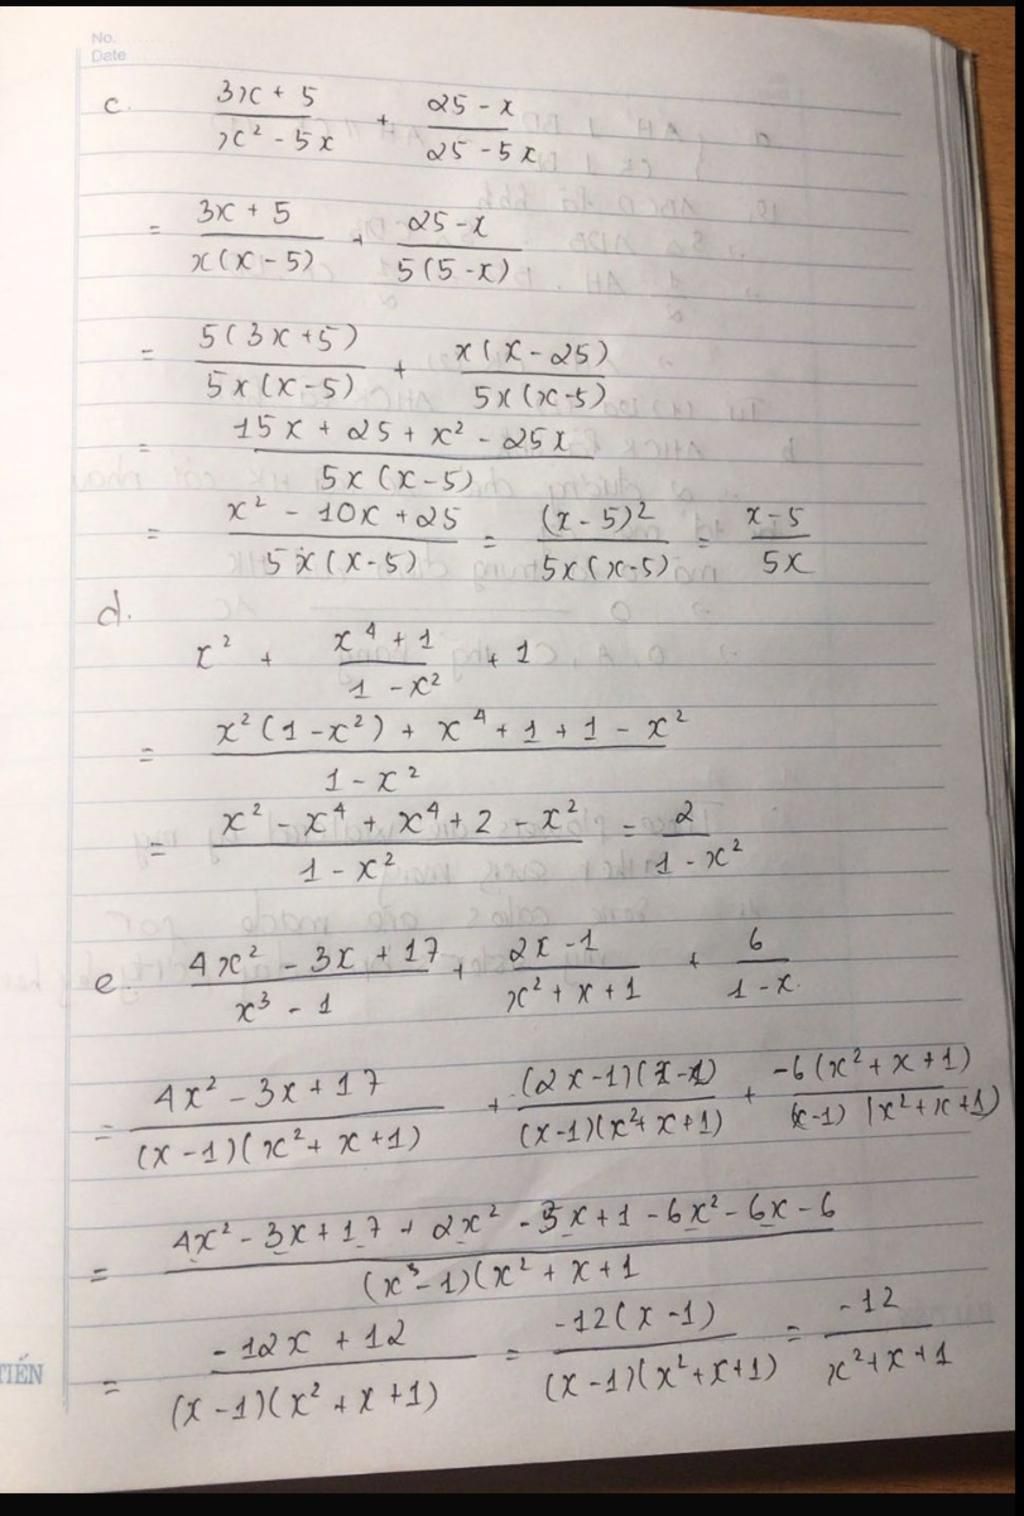 No.
Date
c. (3x + 5)/(x² - 5x) + (25 - x)/(25 - 5x)
= (3x + 5)/(x(x - 5)) + (25 - x)/(5(5 - x))
= (5(3x + 5))/(5x(x - 5)) + (x(x - 25))/(5x(x - 5))
= (15x + 25 + x² - 25x)/(5x(x - 5))
= (x² - 10x + 25)/(5x(x - 5)) = ((x - 5)²)/(5x(x - 5)) = (x - 5)/(5x)
d.
x² + (x⁴ + 1)/(1 - x²) + 1
= (x²(1 - x²) + x⁴ + 1 + 1 - x²)/(1 - x²)
= (x² - x⁴ + x⁴ + 2 - x²)/(1 - x²) = 2/(1 - x²)
e. (4x² - 3x + 17)/(x³ - 1) + (2x - 1)/(x² + x + 1) + 6/(1 - x)
= (4x² - 3x + 17)/((x - 1)(x² + x + 1)) + ((2x - 1)(x - 1))/((x - 1)(x² + x + 1)) + (-6(x² + x + 1))/((x - 1)(x² + x + 1))
= (4x² - 3x + 17 + 2x² - 3x + 1 - 6x² - 6x - 6)/((x³ - 1)(x² + x + 1)
= (-12x + 12)/((x - 1)(x² + x + 1)) = (-12(x - 1))/((x - 1)(x² + x + 1)) = -12/(x² + x + 1)
TIẾN